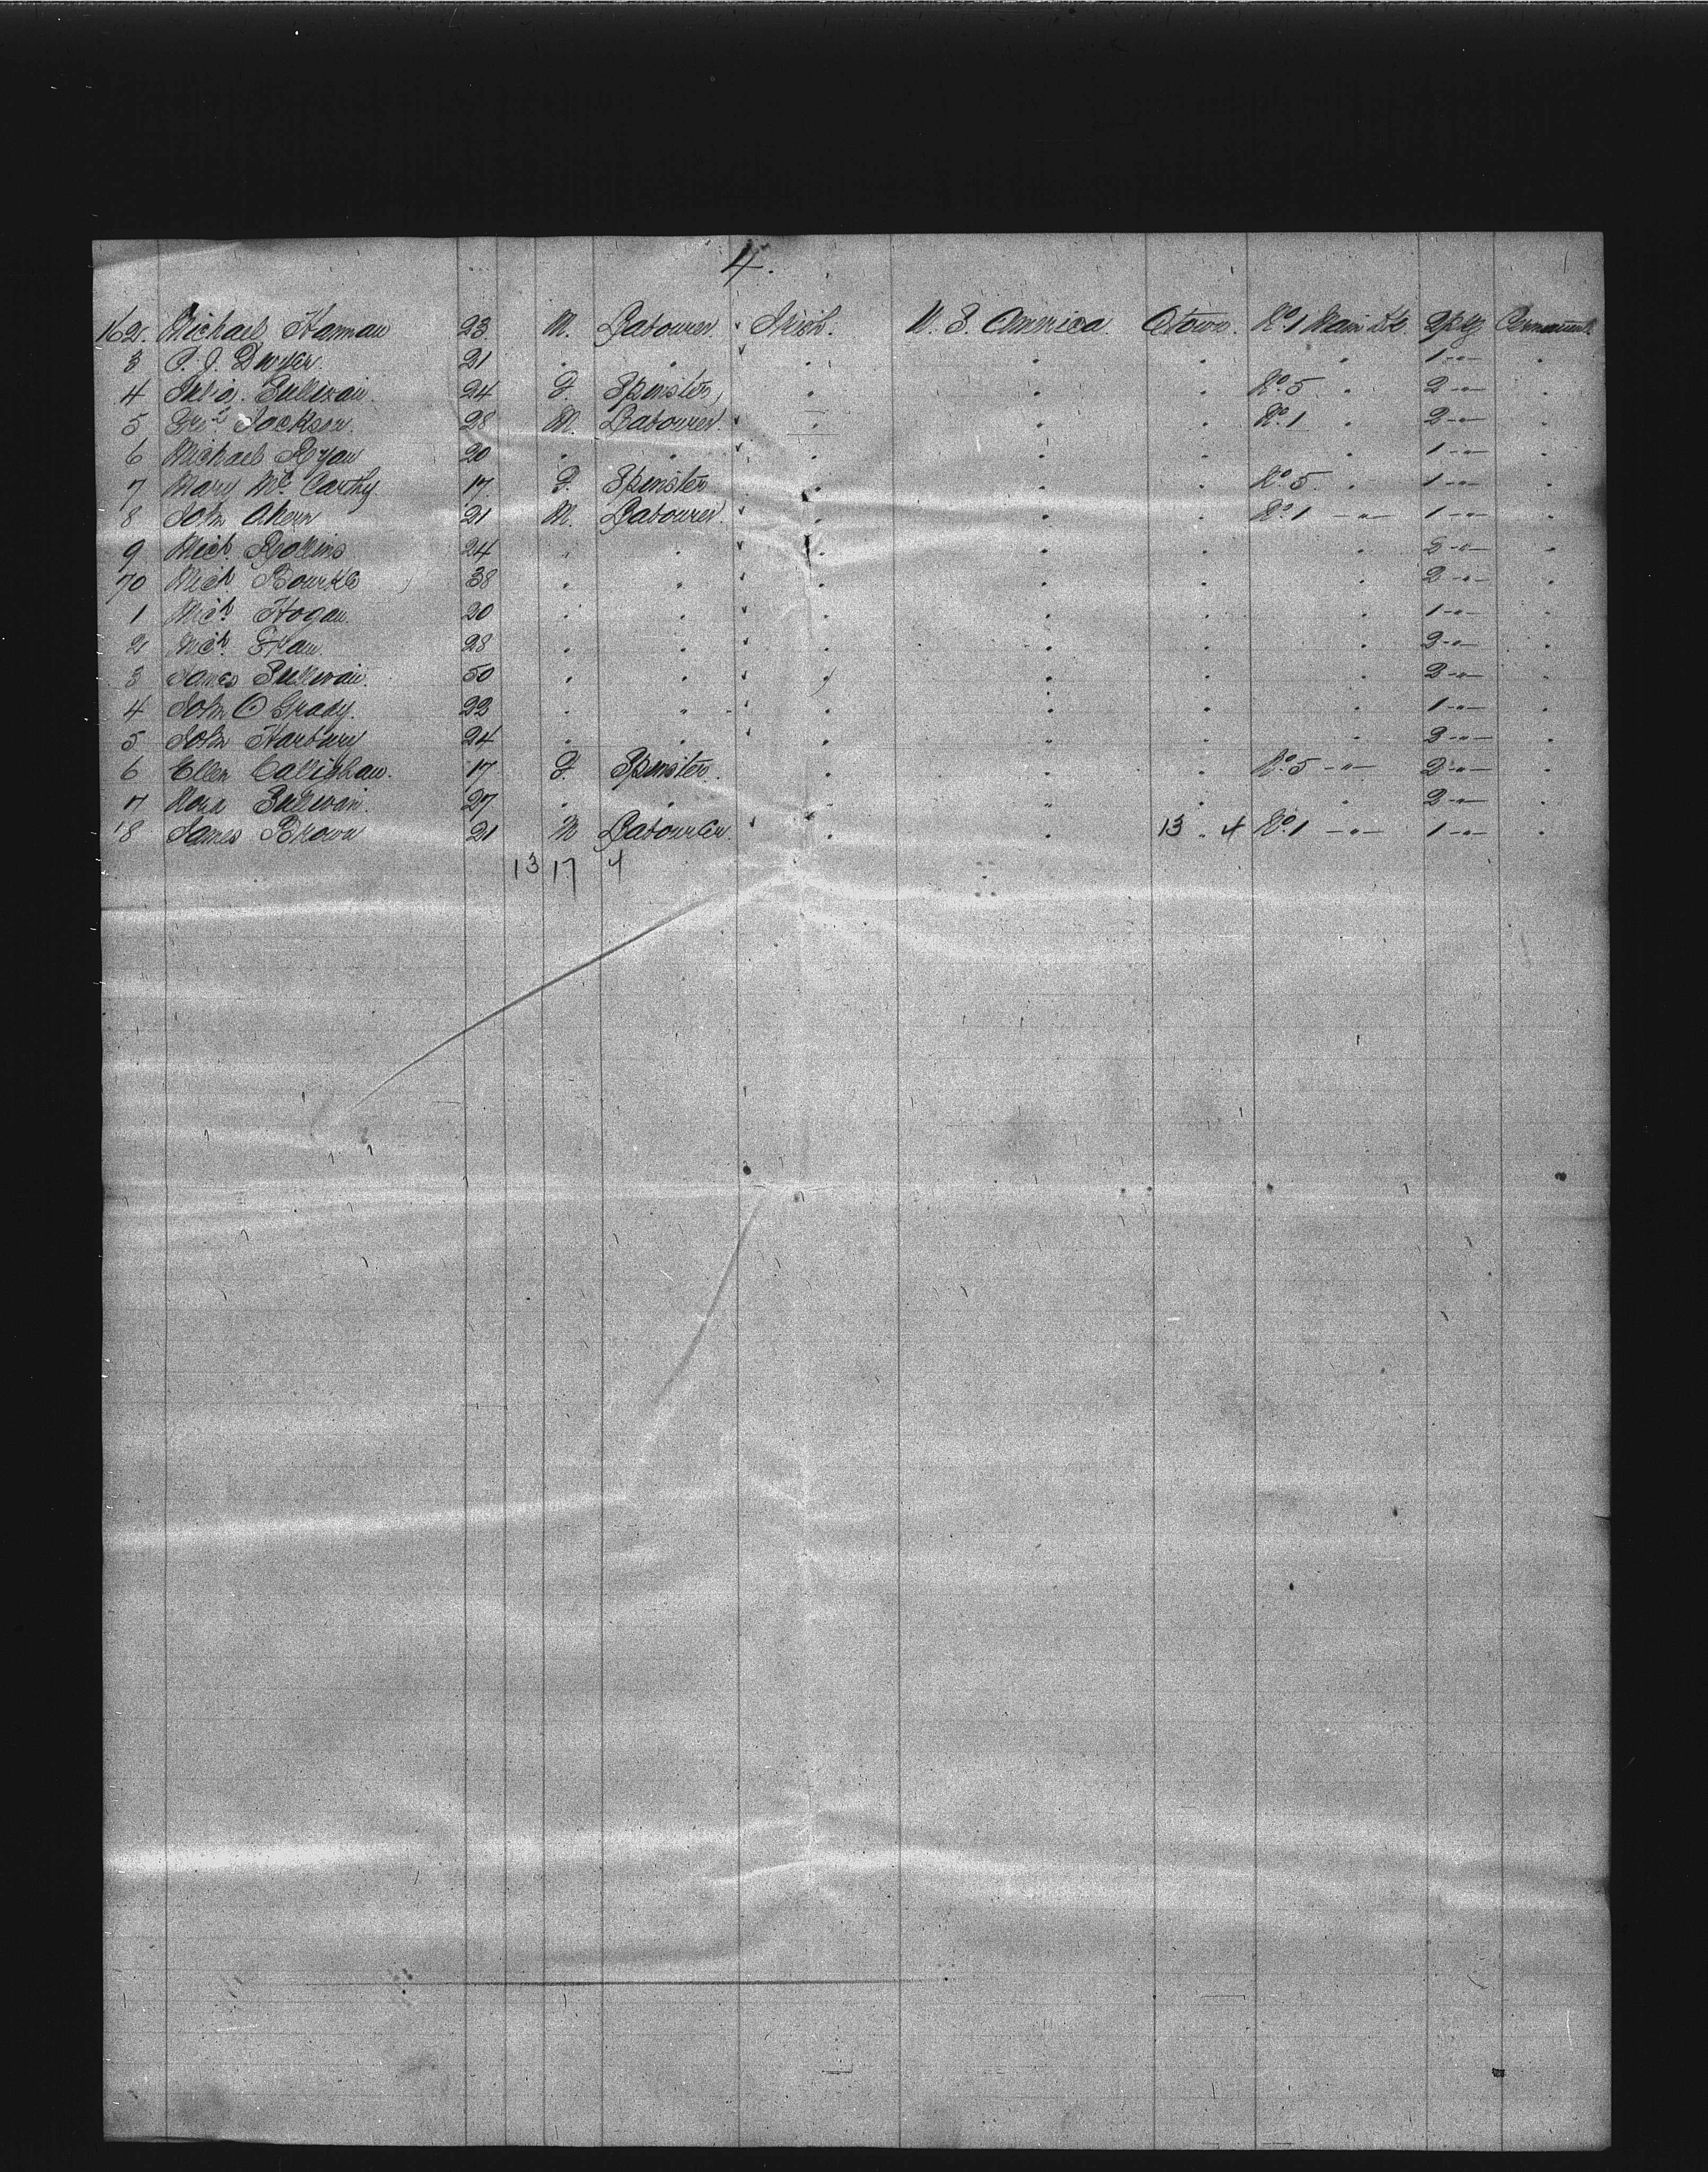 4.
162. Michael Hannan 23 M. Labourer. Irish. U. S. America Qtown. No. 1 Main Dk. 2 pkgs Permanent
3 P. J. Dwyer. 21 . . . . . . 1 -"- .
4 Julia Sullivan. 24 F. Spinster, . . . No. 5 . 2 -"- .
5 Jackson. 28 M. Labourer. . . . No. 1 . 2 -"- .
6 Michael Ryan 20 . . . . . . . 1 -"- .
7 Mary McCarthy. 17. F. Spinster . . . No. 5 . 1 -"- .
8 John Ahern 21 M. Labourer. . . . No. 1 -"- 1 -"- .
9 Mich. Collins 24 . . . . . . 2 -"- .
70 Mich Bourke 38 . . . . . . 2 -"- .
1 Mich. Hogan. 20 . . . . . . 1 -"- .
2 Mich. 28 . . . . . . 2 -"- .
3 James Sullivan. 50 . . . . . . 2 -"- .
4 John O Grady. 22 . . . . . . 1 -"- .
5 John Harbury 24 . . . . . . 2 -"- .
6 Ellen Callighan. 17 F. Spinster. . . . No. 5 -"- 2 -"- .
7 Nora Sullivan. 27 . . . . . . 2 -"- .
8 James Brown 21 M Labourer. . . 13 . 4 No. 1 -"- 1 -"- .
13 17 4